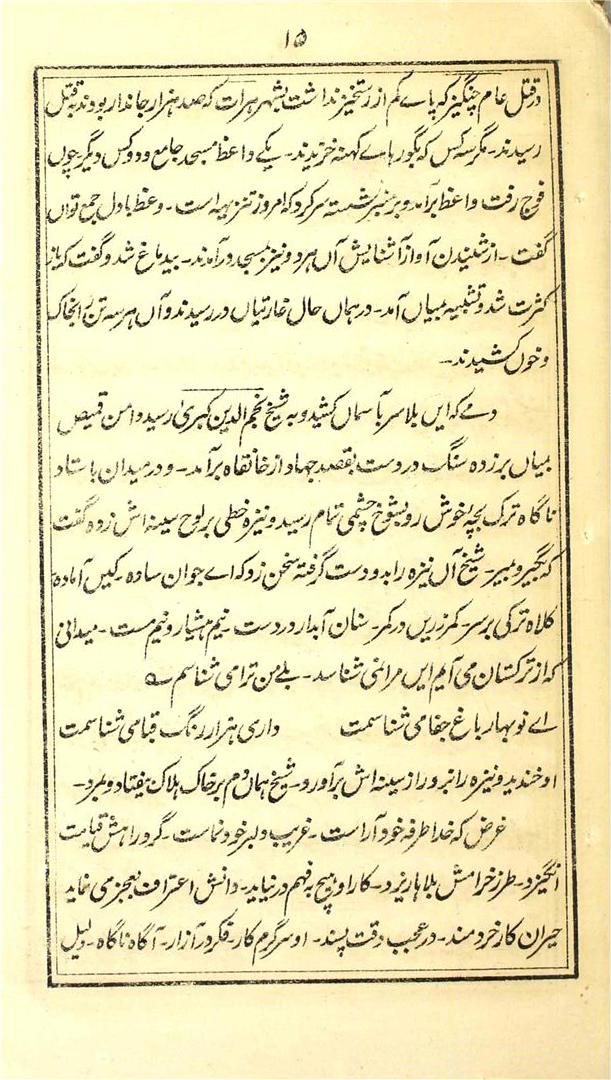 ۱۵
در قتل عام چنگیز که پاے کم از رستخیز نداشت بشهر هرات که صد هزار جاندار بودند بقتل
رسیدند۔ مگر سه کس که بگور هاے کهنه خزیدند۔ یکے واعظ مسجد جامع و دو کس دیگر۔ چوں
فوج رفت واعظ برآمد و بر منبر نشسته سر کرد که امروز تنزیهه است۔ وعظ بادل جمع تواں
گفت۔ از شنیدن آواز آشنایش آں هر دو نیز بمسجد درآمدند۔ بیدماغ شد و گفت که باز
کثرت شد و تشبیه بمیاں آمد۔ در هماں حال غارتیاں در رسیدند و آں هر سه تن را بخاک
و خوں کشیدند۔
دمے که ایں بلا سر بآسماں کشید و به شیخ نجم الدین کبریٰ رسید دامن قمیص
بمیاں بر زده سنگ در دست بقصد جهاد از خانقاه برآمد۔ و در میدان باستاد
ناگاه ترک بچهٔ خوش رو بشوخ چشمی تمام رسید و نیزه خطی بر لوح سینه اش زده گفت
که بگیر و بمیر۔ شیخ آں نیزه را بدو دست گرفته سخن زد که اے جوان ساده۔ کیں آماده
کلاه ترکی بر سر۔ کمر زریں در کمر۔ سنان آبدار در دست۔ نیم هشیار و نیم مست۔ میدانی
که از ترکستان می آیم ایں مرا نمی شناسد۔ بلے من ترا می شناسم ؎
اے نوبهار باغ جفا می شناسمت داری هزار رنگ قبا می شناسمت
او خندید و نیزه را بزور از سینه اش برآورد۔ شیخ هماں دم بر خاک هلاک بیفتاد و بمرد۔
غرض که خدا طرفه خود آراست۔ غریب دلبر خودنماست۔ گرد راهش قیامت
انگیزد۔ طرز خرامش بلاها ریزد۔ کار او هیچ به فهم در نیاید۔ دانش اعتراف بعجز می نماید
حیران کار خردمند۔ در عجب دقت پسند۔ او سرگرم کار۔ فکر در آزار۔ آگاه ناگاه۔ دلیل